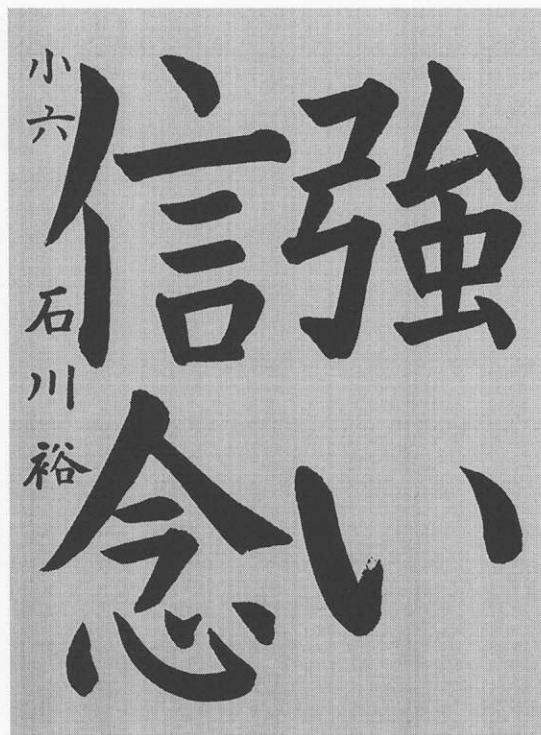 強い
信念
小六 石川裕